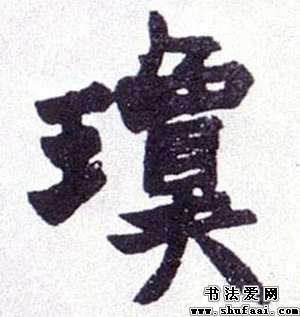 瓊
书法爱网
www.shufaai.com